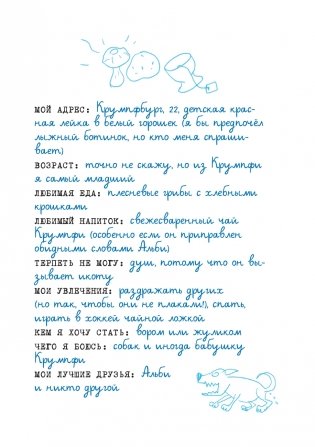 МОЙ АДРЕС: Крумпфбург, 22, детская крас-
ная лейка в белый горошек (я бы предпочёл
лыжный ботинок, но кто меня спраши-
вает)
ВОЗРАСТ: точно не скажу, но из Крумпфи
я самый младший
ЛЮБИМАЯ ЕДА: плесневые грибы с хлебными
крошками
ЛЮБИМЫЙ НАПИТОК: свежесваренный чай
Крумпфи (особенно если он приправлен
обидными словами Альби)
ТЕРПЕТЬ НЕ МОГУ: душ, потому что он вы-
зывает икоту
МОИ УВЛЕЧЕНИЯ: раздражать других
(но так, чтобы они не плакали!), спать,
играть в хоккей чайной ложкой
КЕМ Я ХОЧУ СТАТЬ: вором или жуликом
ЧЕГО Я БОЮСЬ: собак и иногда бабушку
Крумпфи
МОИ ЛУЧШИЕ ДРУЗЬЯ: Альби
и никто другой